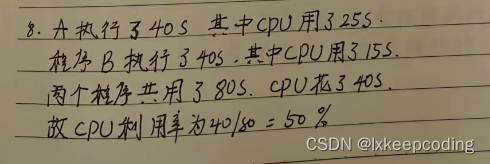 8. A执行了40S 其中CPU用了25S.
程序B执行了40S.其中CPU用了15S.
两个程序共用了80S. CPU花了40S.
故CPU利用率为40/80 = 50 %
CSDN @lxkeepcoding